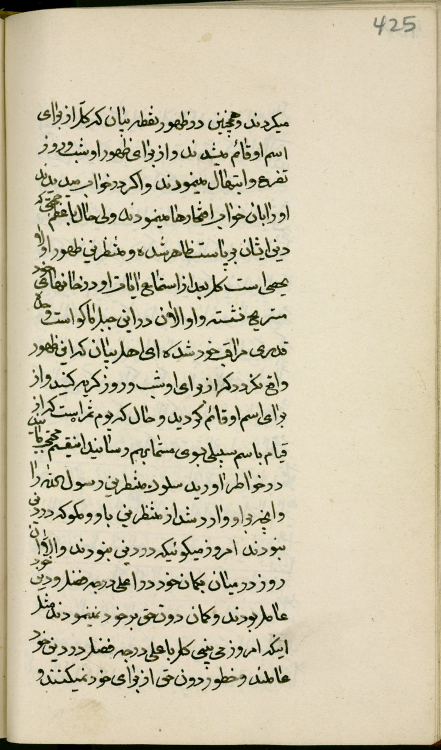 425
میکردند و همچنین در ظهور نقطه بیان که کل از برای
اسم او قائم میشدند و از برای ظهور او شب و روز
تضرع و ابتهال مینمودند و اگر در خواب میدیدند
او را بان خواب افتخارها مینمودند ولی حال باعظم حجتی که
دین ایشان بر پا است ظاهر شده و منتظرین ظهور او
یحصی است کل بعد از استماع ایات او در خانهای خود
مستریح نشسته و او الان در این جبل ماکو است وحده
قدری مراقب خود شده ای اهل بیان که این ظهور
واقع نگردد که از برای او شب و روز گریه کنید و از
برای اسم او قائم گردید و حال که یوم ثمر است که از
قیام باسم سبیلی بسوی مسمای بهم رسانید اینقسم محتجب مانید
در خواطر اورید سلوک منتظرین رسول الله را
و انچه بر او وارد شد از منتظرین باو و مگو که در دین
نبودند امروز میگوئی که در دین نبودند والا ان
روز در میان بگمان خود در اعلی درجه فضل و دین خود
عامل بودند و گمان دون حق بر خود نمینمودند مثل
اینکه امروز می بینی کل باعلی درجه فضل در دین خود
عاملند و خطور دون حق از برای خود نمیکنند و